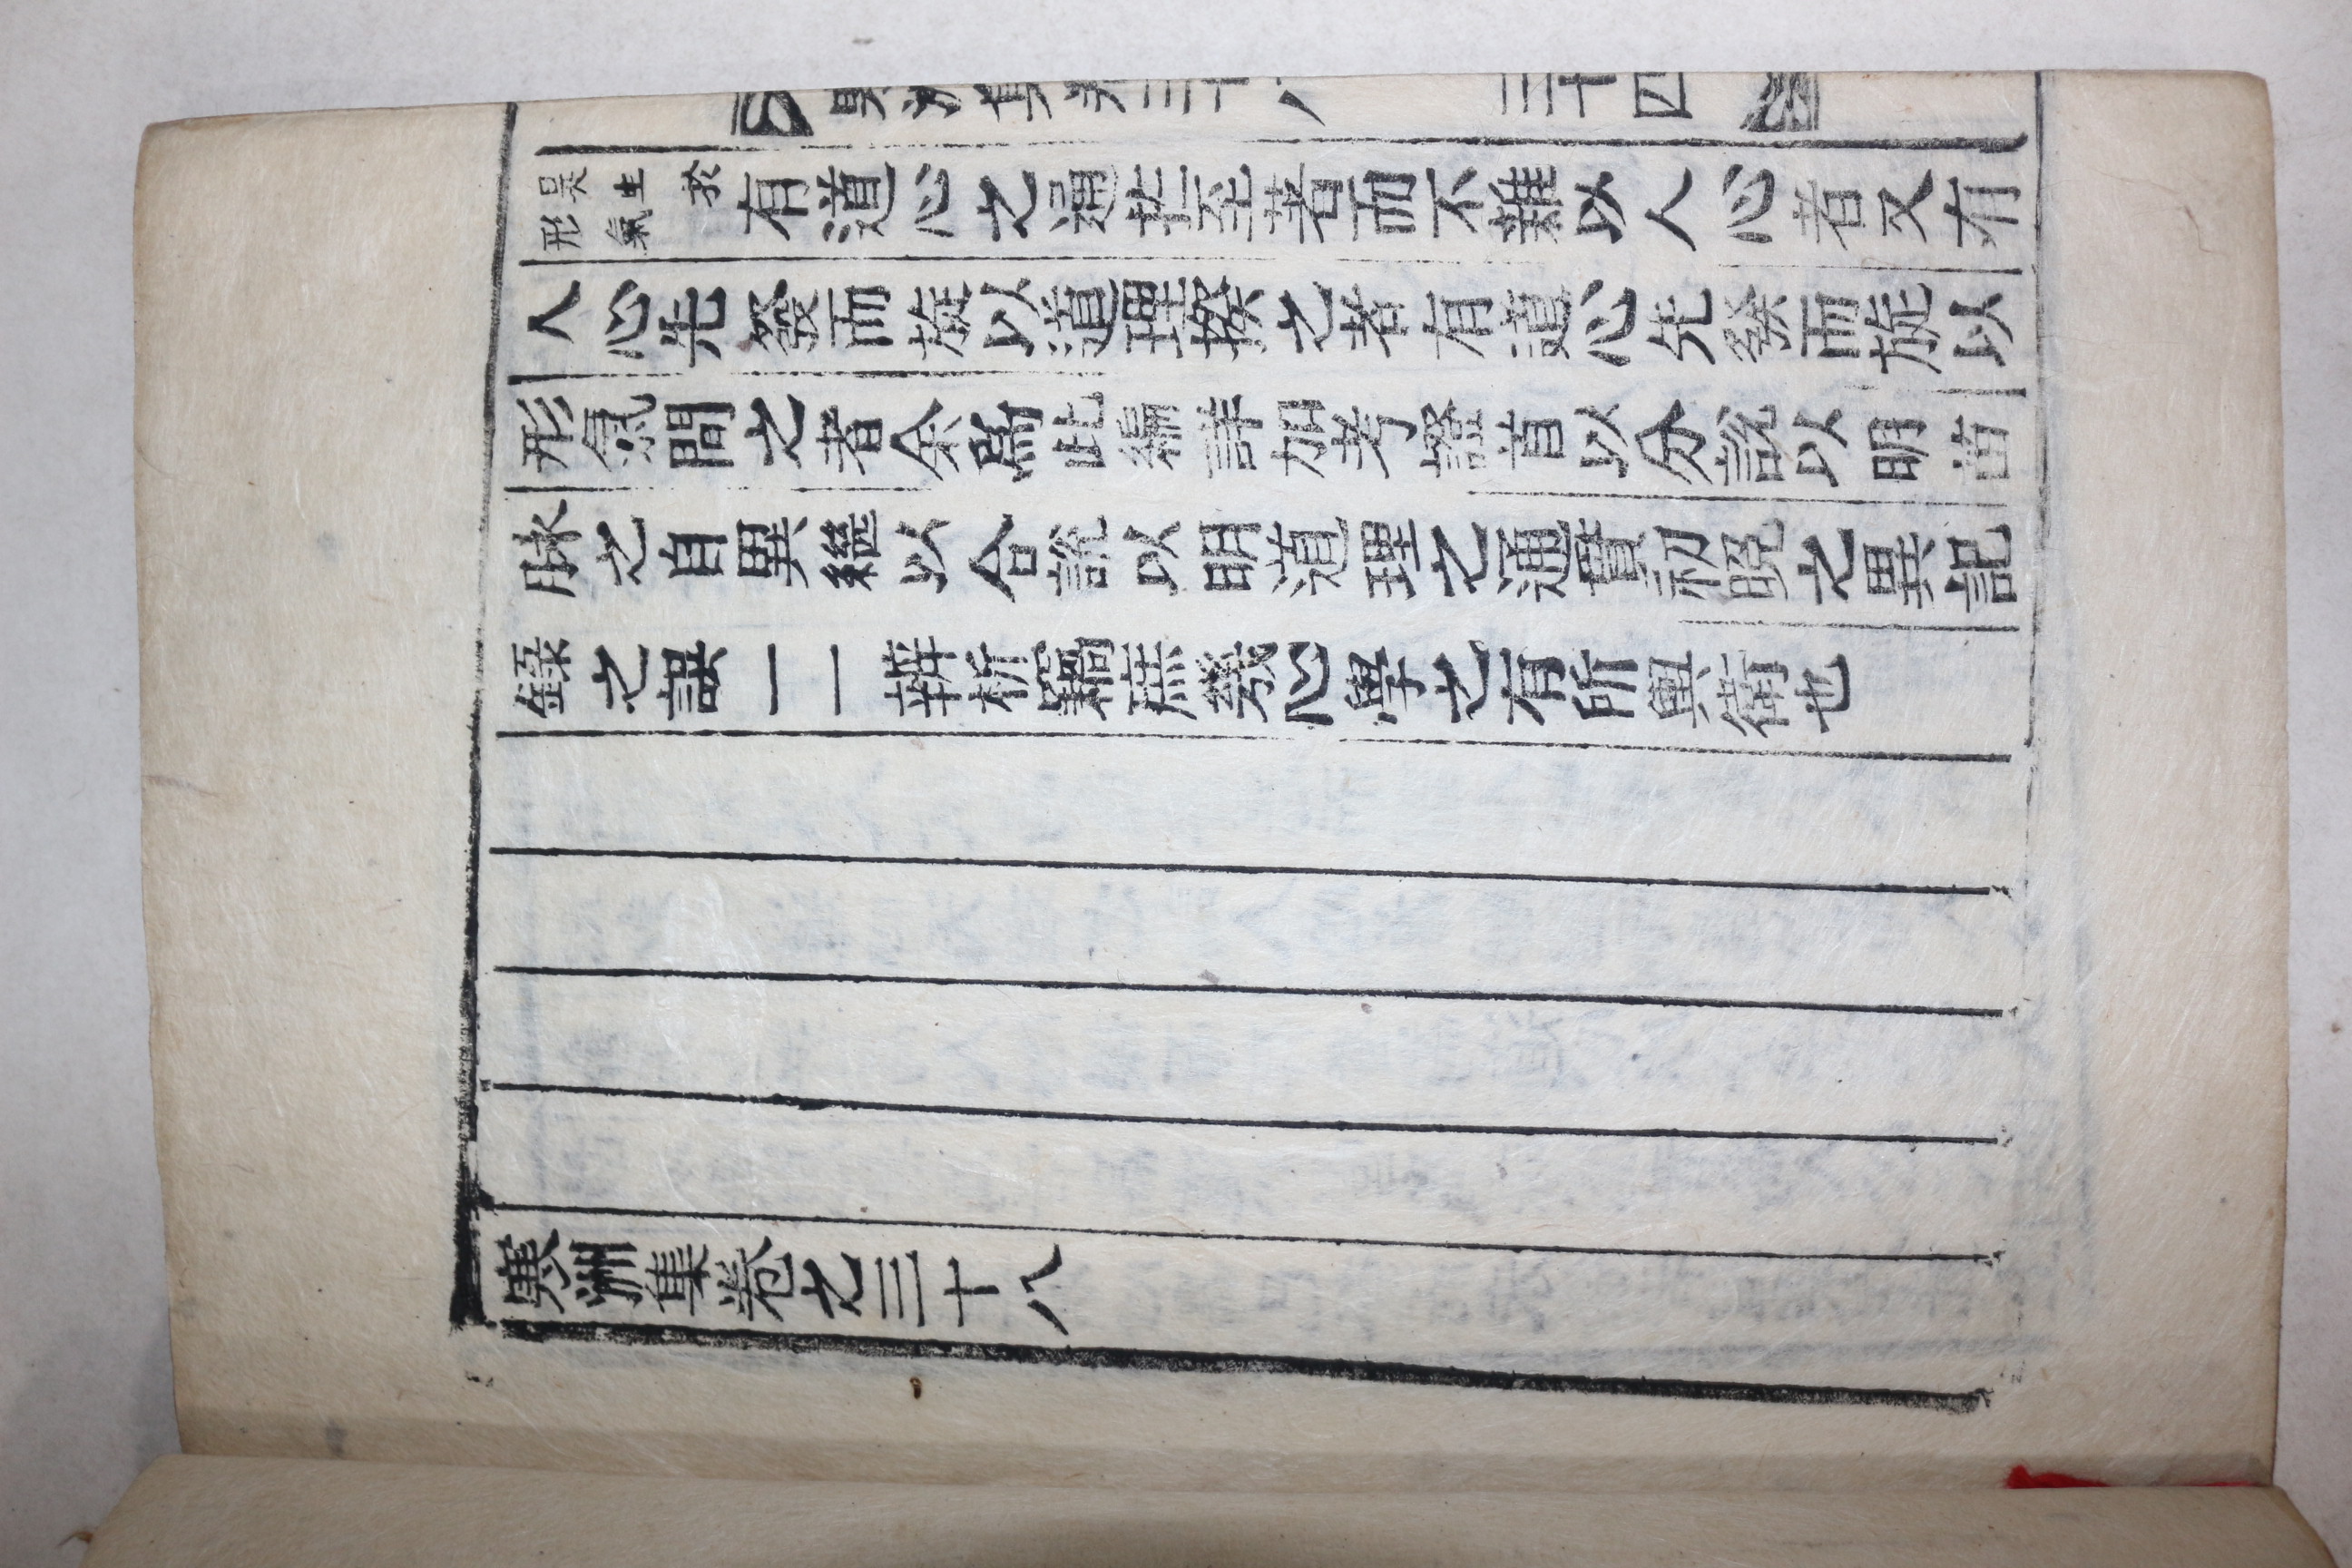 寒洲集卷三十八　三十四
是生於形氣有道心之至著而不雜以人心者又有
人心先發而旋以道理揆之者有道心先發而旋以
形氣間之者余爲此編詳加考證首以分說以明苗
脉之自異繼以合說以明道理之通貫初晩之異記
錄之誤一一辨析竊庶幾心學之有所輿衛也
寒洲集卷之三十八